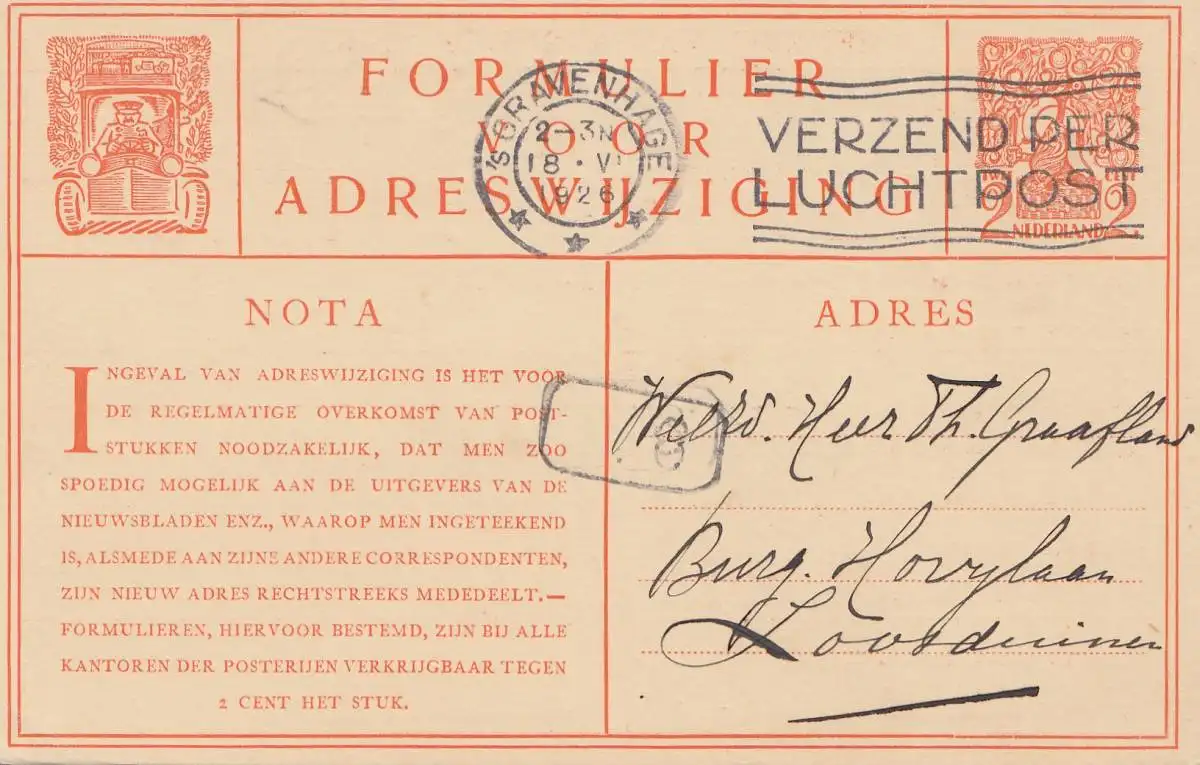 FORMULIER
VOOR
ADRESWIJZIGING
'SGRAVENHAGE
2-3N
18 · VI
1926
VERZEND PER
LUCHTPOST
2 CENT 2
NEDERLAND
NOTA
INGEVAL VAN ADRESWIJZIGING IS HET VOOR
DE REGELMATIGE OVERKOMST VAN POST-
STUKKEN NOODZAKELIJK, DAT MEN ZOO
SPOEDIG MOGELIJK AAN DE UITGEVERS VAN DE
NIEUWSBLADEN ENZ., WAAROP MEN INGETEEKEND
IS, ALSMEDE AAN ZIJNE ANDERE CORRESPONDENTEN,
ZIJN NIEUW ADRES RECHTSTREEKS MEDEDEELT.—
FORMULIEREN, HIERVOOR BESTEMD, ZIJN BIJ ALLE
KANTOREN DER POSTERIJEN VERKRIJGBAAR TEGEN
2 CENT HET STUK.
ADRES
Heer Th. Graafland
Burg. Hovylaan
Loosduinen